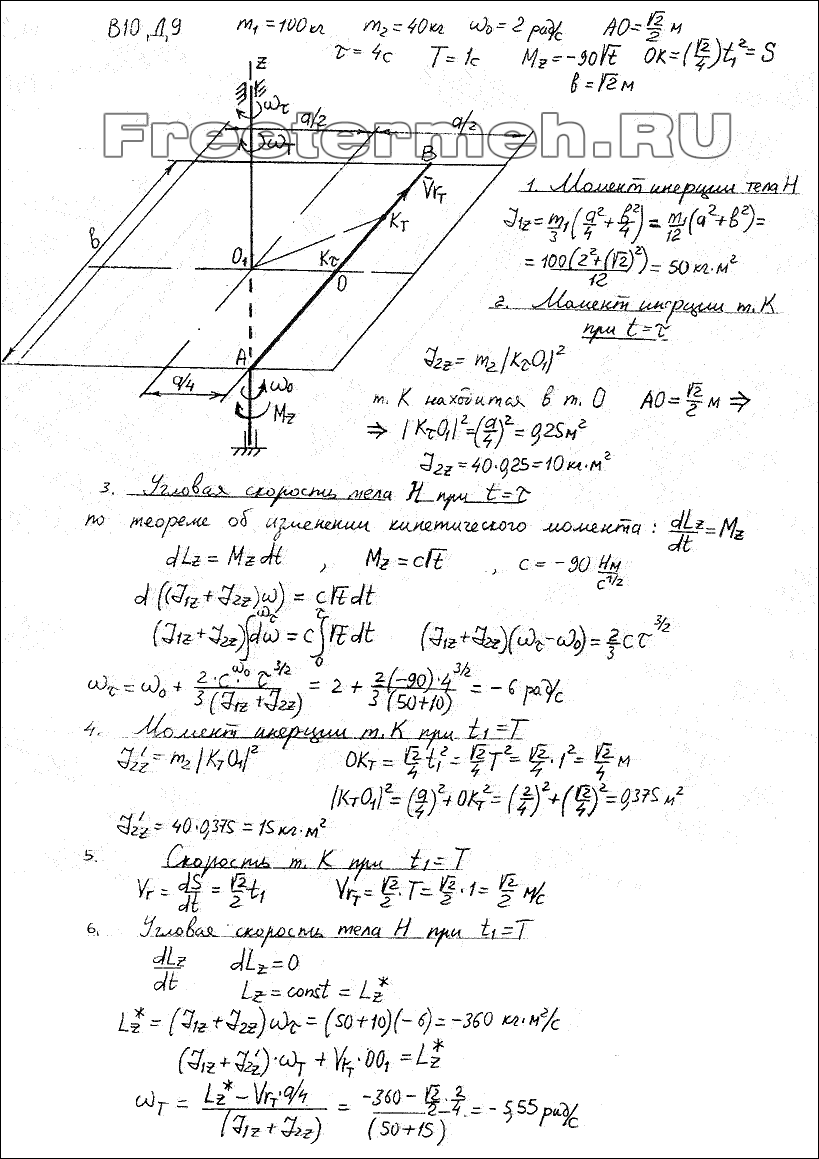 В10, Д9 m₁=100кг m₂=40кг ω₀=2 рад/с AO=√2/2 м
τ=4с T=1с Mz=-90√t OK=(√2/4)t₁²=S
в=√2 м
Freetermeh.RU
z
ωτ
a/2 a/2
ωT
B
V̄rT
KT
в
O₁ Kτ
O
A
a/4
ω₀
Mz
1. Момент инерции тела H
J₁z=m₁/3(a²/4+в²/4)=m₁/12(a²+в²)=
=100(2²+(√2)²)/12=50 кг·м²
2. Момент инерции т. K
при t=τ
J₂z=m₂|KτO₁|²
т. K находится в т. O AO=√2/2 м ⇒
⇒ |KτO₁|²=(a/4)²=0,25м²
J₂z=40·0,25=10кг·м²
3. Угловая скорость тела H при t=τ
по теореме об изменении кинетического момента: dLz/dt=Mz
dLz=Mz dt , Mz=c√t , c=-90 Нм/с^1/2
d((J₁z+J₂z)ω)=c√t dt
(J₁z+J₂z)∫_ω₀^ωτ dω=c∫_0^τ √t dt (J₁z+J₂z)(ωτ-ω₀)=2/3 cτ^3/2
ωτ=ω₀+2·c·τ^3/2/3(J₁z+J₂z)=2+2(-90)·4^3/2/3(50+10)=-6 рад/с
4. Момент инерции т. K при t₁=T
J₂z'=m₂|KTO₁|² OKT=√2/4 t₁²=√2/4 T²=√2/4·1²=√2/4 м
|KTO₁|²=(a/4)²+OKT²=(2/4)²+(√2/4)²=0,375 м²
J₂z'=40·0,375=15кг·м²
5. Скорость т. K при t₁=T
Vr=dS/dt=√2/2 t₁ VrT=√2/2·T=√2/2·1=√2/2 м/с
6. Угловая скорость тела H при t₁=T
dLz/dt dLz=0
Lz=const=Lz*
Lz*=(J₁z+J₂z)ωτ=(50+10)(-6)=-360 кг·м²/с
(J₁z+J₂z')·ωT+VrT·OO₁=Lz*
ωT=Lz*-VrT·a/4/(J₁z+J₂z)=-360-√2/2·2/4/(50+15)=-5,55 рад/с